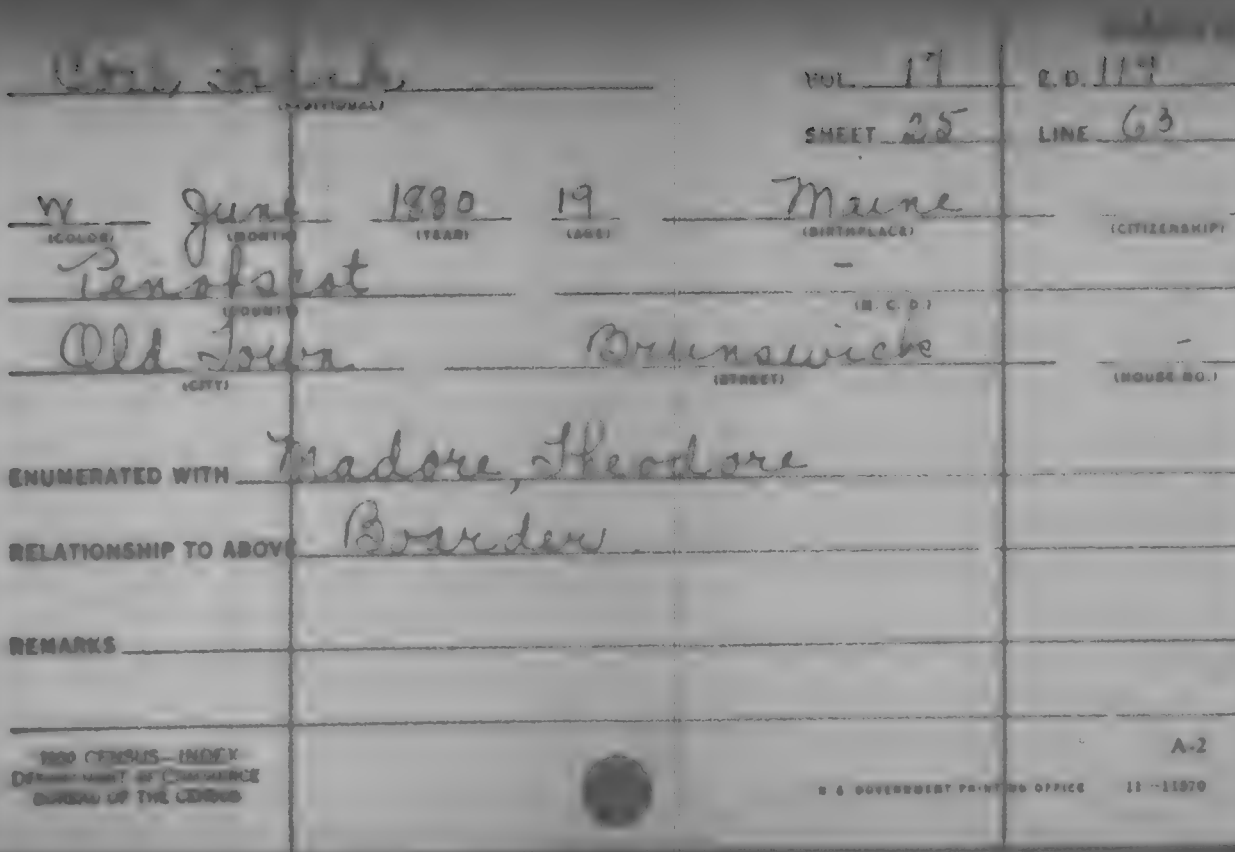 VOL. 17 E.D. 119
(INDIVIDUAL)
SHEET 25 LINE 63
W June 1880 19 Maine
(COLOR) (MONTH) (YEAR) (AGE) (BIRTHPLACE) (CITIZENSHIP)
Penobscot -
(COUNTY) (M. C. D.)
Old Town Brunswick -
(CITY) (STREET) (HOUSE NO.)
ENUMERATED WITH Madore, Theodore
RELATIONSHIP TO ABOVE Boarder
REMARKS
1900 CENSUS—INDEX A-2
DEPARTMENT OF COMMERCE
BUREAU OF THE CENSUS
U S GOVERNMENT PRINTING OFFICE 11-11870